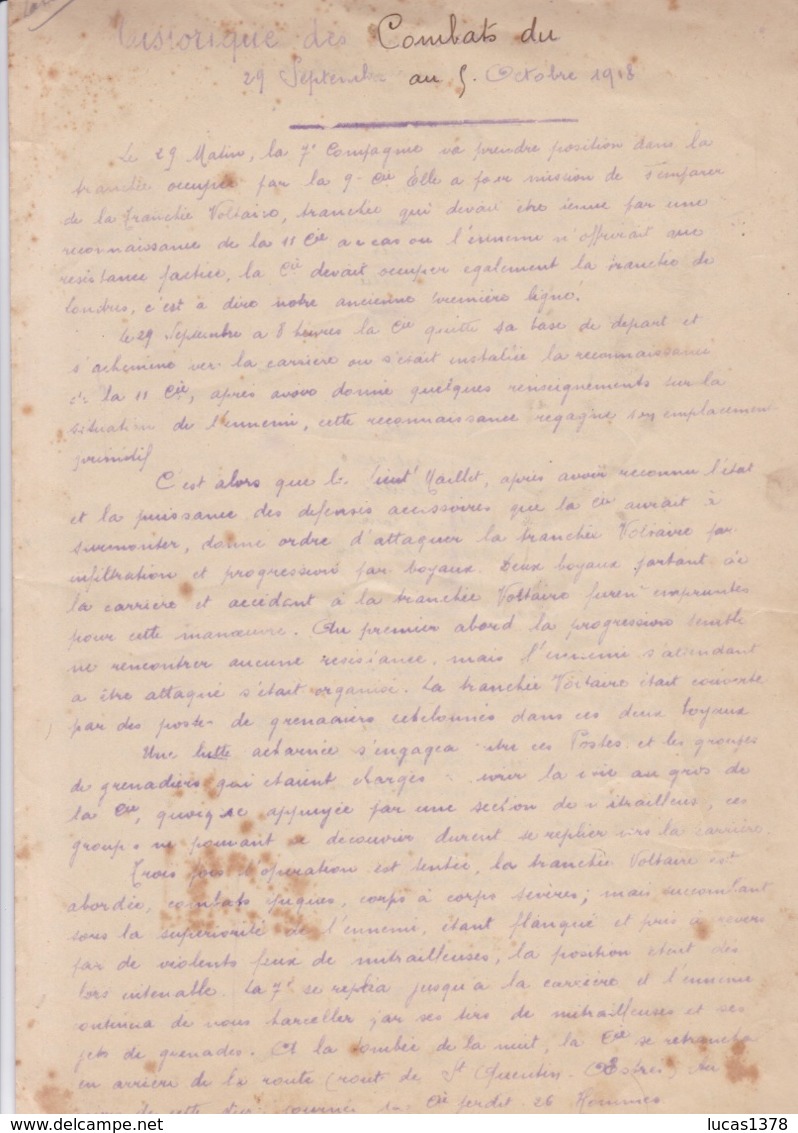 Historique des Combats du
29 Septembre au 5 Octobre 1918
Le 29 Matin, la 7e Compagnie va prendre position dans la
tranchée occupée par la 9e Cie Elle a pour mission de s'emparer
de la Tranchée Voltaire, tranchée qui devait être tenue par une
reconnaissance de la 11 Cie au cas ou l'ennemi n'offrirait que
resistance factice, la Cie devait occuper egalement la tranchée de
londres, c'est à dire notre ancienne première ligne.
le 29 Septembre a 8 heures la Cie quitte sa base de depart et
s'achemine ver la carrière ou s'était installée la reconnaissance
de la 11 Cie, après avoir donné quelques renseignements sur la
situation de l'ennemi, cette reconnaissance regagne son emplacement
primitif
C'est alors que le Lieut Maillet, après avoir reconnu l'état
et la puissance des defenses accessoires que la Cie aurait à
surmonter, donne ordre d'attaquer la tranchée Voltaire par
infiltration et progression par boyaux. Deux boyaux partant de
la carrière et accédant à la tranchée Voltaire furent empruntés
pour cette manœuvre. Au premier abord la progression semble
ne rencontrer aucune resistance, mais l'ennemi s'attendant
a être attaqué s'était organisé. La tranchée Voltaire était couverte
par des postes de grenadiers echelonnés dans ces deux boyaux
Une lutte acharnée s'engagea entre ces Postes et les groupes
de grenadiers qui etaient chargés ouvrir la voie au gros de
la Cie, quoique appuyée par une section de mitrailleus, ces
groupes ne pouvant se decouvrir durent se replier vers la carrière.
Trois fois l'operation est tentée, la tranchée Voltaire est
abordée, combats corps à corps sevères; mais succombant
sous la superiorité de l'ennemi, étant flanqué et pris à revers
par de violents feux de mitrailleuses, la position etait dès
lors intenable. La 7e se replia jusqu'à la carrière et l'ennemi
continua de nous harceller par ses tirs de mitrailleuses et ses
jets de grenades. A la tombée de la nuit, la Cie se retrancha
en arrière de la route (route de St Quentin - ) Au
de cette journée la Cie perdit 26 Hommes
lucas1378